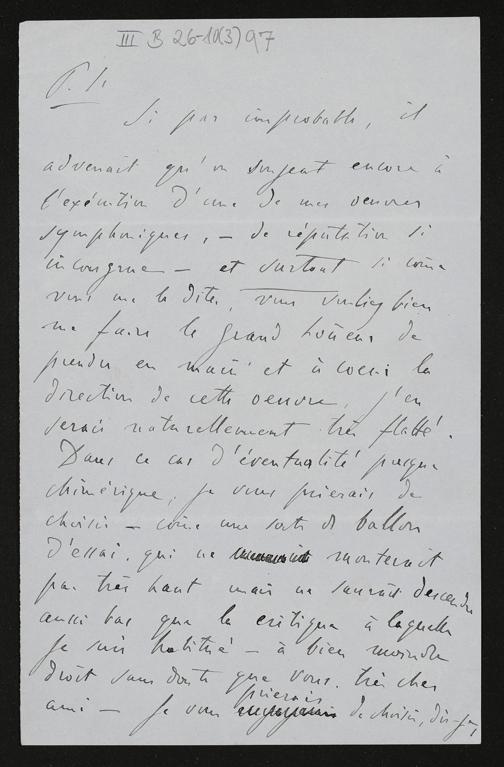 III B 26-10(3)97
P. S.
Si par improbable, il
advenait qu'on songeat encore à
l'exécution d'une de mes oeuvres
symphoniques, — de réputation si
incongrue — et surtout si come
vous me le dites, vous vouliez bien
me faire le grand honeur de
prendre en main et à coeur la
direction de cette oeuvre, j'en
serais naturellement très flatté.
Dans ce cas d'éventualité presque
chimérique, je vous prierais de
choisir — come une sorte de ballon
d'essai, qui ne monterait
pas très haut mais ne saurait descendre
aussi bas que la critique à laquelle
je suis habitué — à bien moindre
droit sans doute que vous, très cher
ami — je vous prierais de choisir, dis-je,